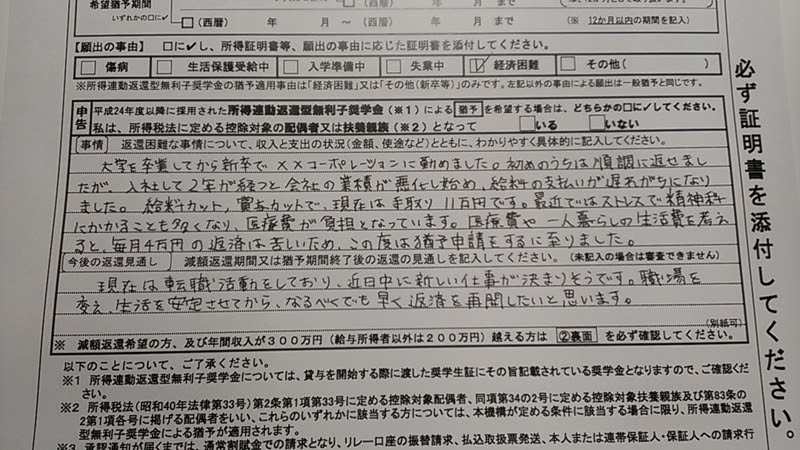 希望猶予期間
いずれかの□に✓ □(西暦) 年 月 ~(西暦) 年 月 まで (※ 12か月以内の期間を記入)
【願出の事由】 □に✓し、所得証明書等、願出の事由に応じた証明書を添付してください。
□ 傷病 □ 生活保護受給中 □ 入学準備中 □ 失業中 ☑ 経済困難 □ その他(
※所得連動返還型無利子奨学金の猶予適用事由は「経済困難」又は「その他(新卒等)」のみです。左記以外の事由による願出は一般猶予と同じです。
申告 平成24年度以降に採用された所得連動返還型無利子奨学金(※1)による 猶予 を希望する場合は、どちらかの□に✓してください。
私は、所得税法に定める控除対象の配偶者又は扶養親族(※2)となって □いる □いない
[事情] 返還困難な事情について、収入と支出の状況(金額、使途など)とともに、わかりやすく具体的に記入してください。
大学を卒業してから新卒で××コーポレーションに勤めました。初めのうちは順調に返せまし
たが、入社して2年が経つと会社の業績が悪化し始め、給料の支払いが遅れがちになり
ました。給料カット、賞与カットで、現在は手取り11万円です。最近ではストレスで精神科
にかかることも多くなり、医療費が負担となっています。医療費や一人暮らしの生活費を考え
ると、毎月4万円の返済は苦しいため、この度は猶予申請をするに至りました。
今後の返還見通し 減額返還期間又は猶予期間終了後の返還の見通しを記入してください。(未記入の場合は審査できません)
現在は転職活動をしており、近日中に新しい仕事が決まりそうです。職場を
変え、生活を安定させてから、なるべくでも早く返済を再開したいと思います。
(別紙可)
※ 減額返還希望の方、及び年間収入が300万円(給与所得者以外は200万円)越える方は ②裏面 を必ず確認してください。
以下のことについて、ご了承ください。
※1 所得連動返還型無利子奨学金については、貸与を開始する際に渡した奨学生証にその旨記載されている奨学金となりますので、ご確認ください。
※2 所得税法(昭和40年法律第33号)第2条第1項第33号に定める控除対象配偶者、同項第34の2号に定める控除対象扶養親族及び第83条の
2第1項各号に掲げる配偶者をいい、これらのいずれかに該当する方については、本機構が定める条件に該当する場合に限り、所得連動返還
型無利子奨学金による猶予が適用されます。
※3 承認通知が届くまでは、通常割賦金での請求となり、リレー口座の振替請求、払込取扱票発送、本人または連帯保証人・保証人への請求行
必ず証明書を添付してください。